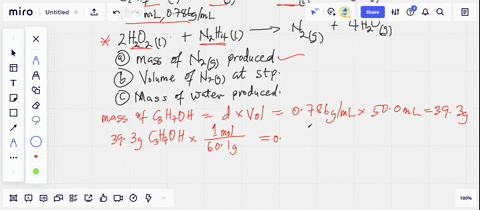 miro Untitled Share
mL, 0.786g/mL
* 2H₂O₂(l) + N₂H₄(l) → N₂(g) + 4H₂O(g)
(a) mass of N₂(g) produced ✓
(b) Volume of N₂(g) at stp.
(c) Mass of water produced.
mass of C₃H₇OH = d × Vol = 0.786g/mL × 50.0mL = 39.3g
39.3g C₃H₇OH × 1mol / 60.1g = 0.
100%